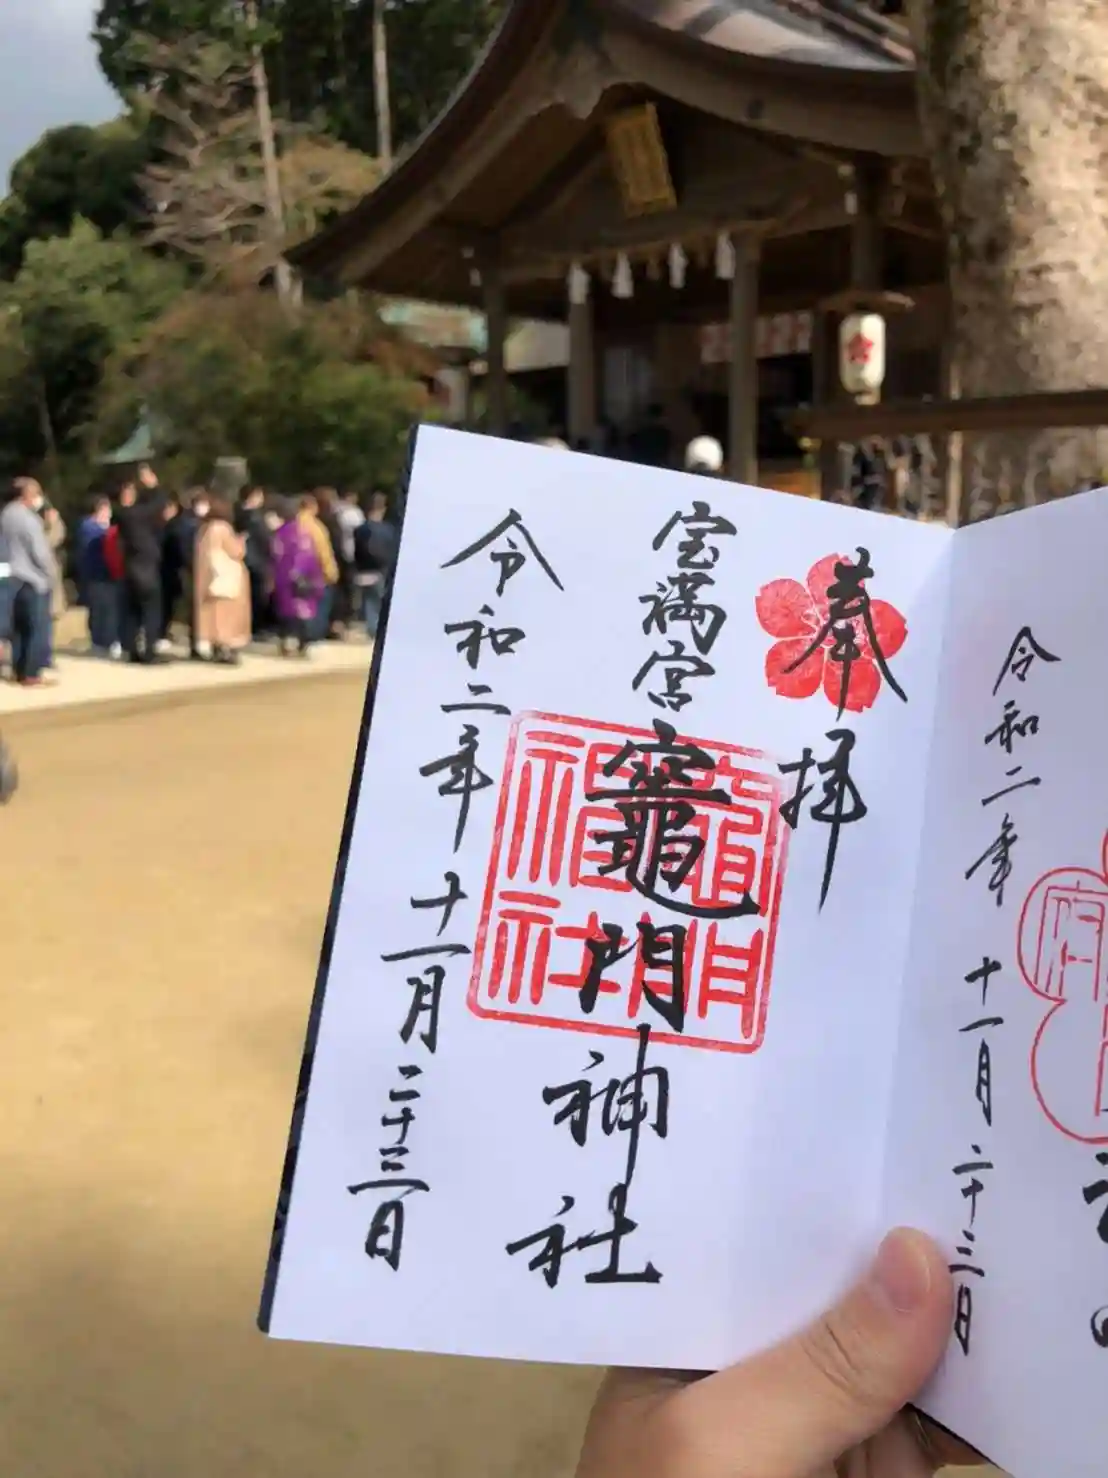 奉拝
宝満宮
竈門神社
令和二年十一月二十三日
竈門
神社
令和二年十一月二十三日
府